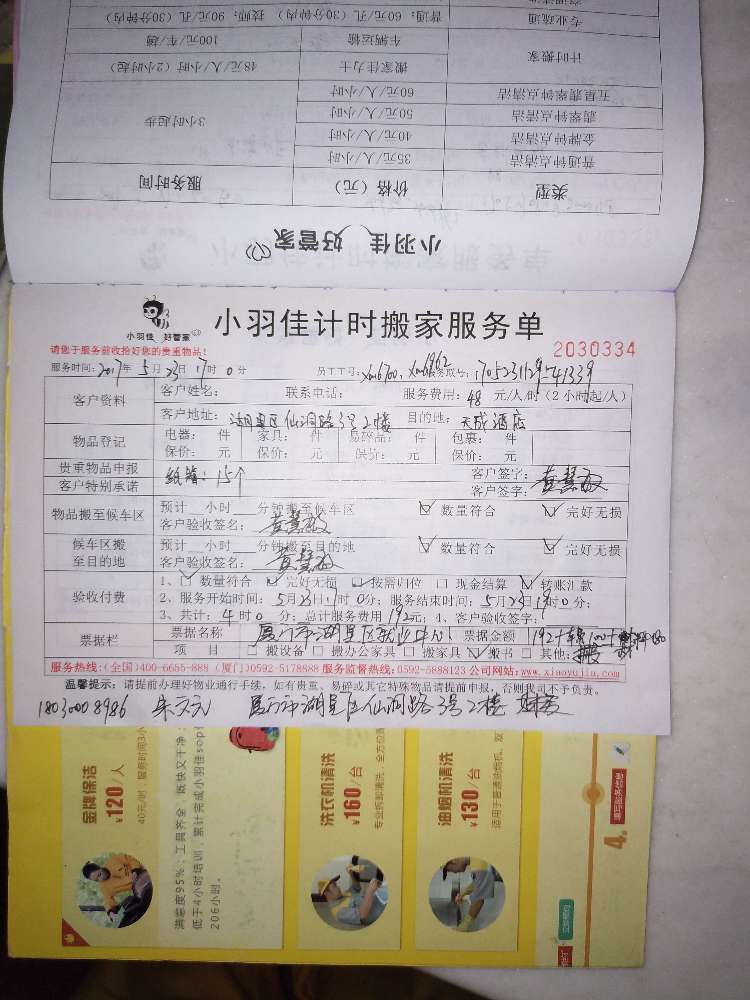 小羽佳 好管家
类型 价格（元） 服务时间
普通钟点清洁 35元/人/小时
金牌钟点清洁 40元/人/小时
翡翠钟点清洁 50元/人/小时
五星翡翠钟点清洁 60元/人/小时
3小时起步
计时搬家 搬家佳力士 48元/人/小时（2小时起）
车辆运输 100元/车/趟
专业疏通 普通：60元/孔（30分钟内） 技师：90元/孔（30分钟内）
小羽佳 好管家
小羽佳计时搬家服务单
请您于服务前收拾好您的贵重物品！
2030334
服务时间：2017年5月23日17时0分 员工工号：xm6700、xm6962
客户资料 客户姓名： 联系电话： 服务费用：48元/人/时（2小时起/人）
客户地址：湖里区仙洞路3号2楼 目的地：天成酒店
物品登记 电器： 件 家具： 件 易碎品： 件 包裹： 件
保价： 元 保价： 元 保价： 元 保价： 元
贵重物品申报 纸箱：15个 客户签字：黄慧敏
客户特别承诺 客户签字：
物品搬至候车区 预计 小时 分钟搬至候车区 数量符合 完好无损
客户验收签名：黄慧敏
候车区搬至目的地 预计 小时 分钟搬至目的地 数量符合 完好无损
客户验收签名：黄慧敏
验收付费 1、数量符合 完好无损 按需归位 现金结算 转账汇款
2、服务开始时间：5月23日17时0分；服务结束时间：5月23日19时0分；
3、共计：4时0分；总计服务费用192元；4、客户验收签字：
票据栏 票据名称 厦门市湖里区 票据金额 192+车费100+
项目 搬设备 搬办公家具 搬家具 搬书 其他：
服务热线:(全国)400-6655-888 (厦门)0592-5178888 服务监督热线:0592-5888123 公司网站:www.xiaoyujia.com
温馨提示：请提前办理好物业通行手续，如有贵重、易碎或其它特殊物品请提前申报，否则我司不予负责。
18030008986 厦门市湖里区仙洞路3号2楼
金牌保洁
¥120/人
满意度95%；工具齐全，既快又干净；
低于4小时培训，累计完成小羽佳sop
206小时。
洗衣机清洗
¥160/台
油烟机清洗
¥130/台
4.